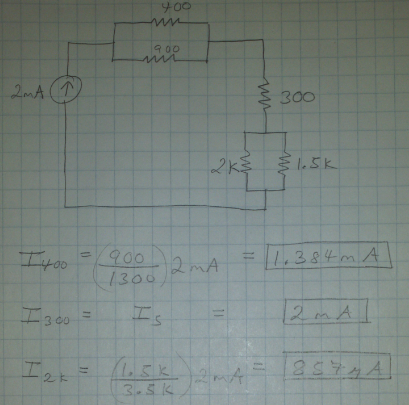 400
900
2mA
300
2K
1.5K
I400 = (900/1300) 2mA = 1.384mA
I300 = IS = 2mA
I2K = (1.5K/3.5K) 2mA = 857μA